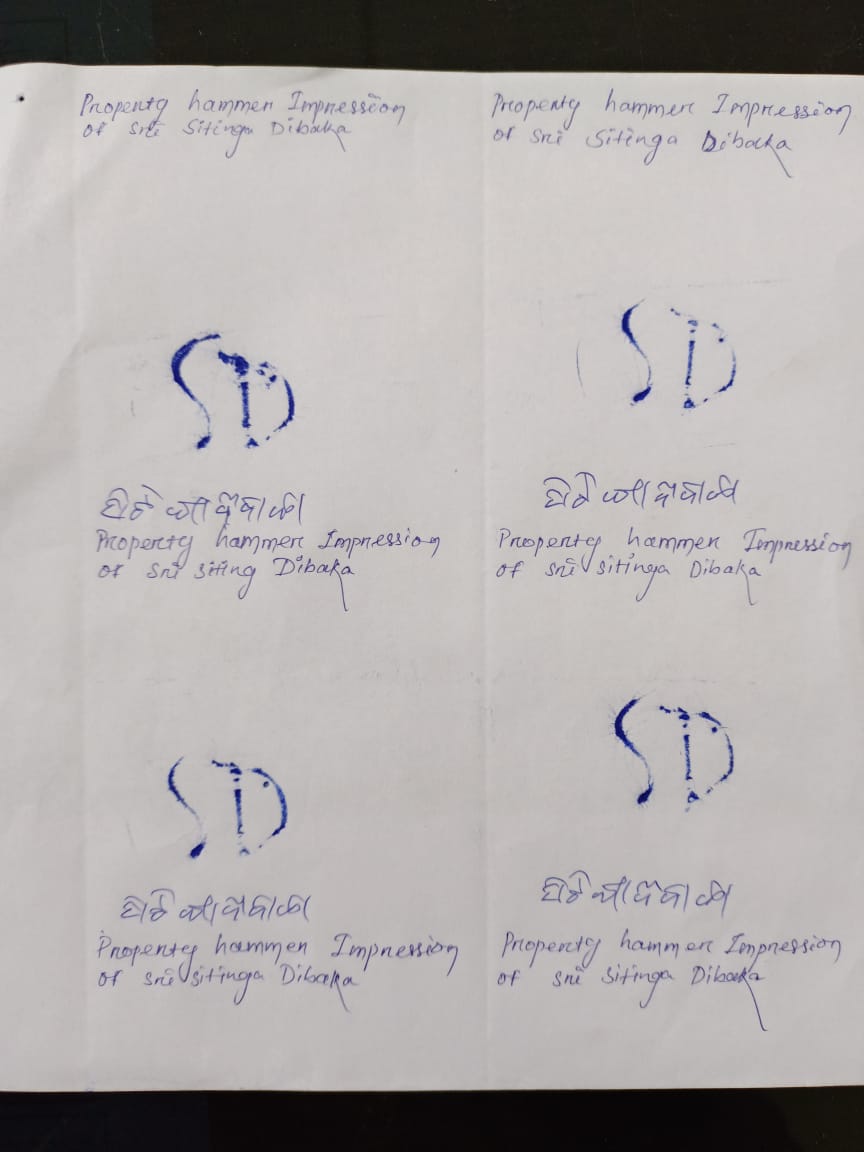 Property hammer Impression
of Sri Sitinga Dibaka
Property hammer Impression
of Sri Sitinga Dibaka
SD
SD
ସିଟିଙ୍ଗା ଦିବାକା
Property hammer Impression
of Sri Siting Dibaka
ସିଟିଙ୍ଗା ଦିବାକା
Property hammer Impression
of Sri Sitinga Dibaka
SD
SD
ସିଟିଙ୍ଗା ଦିବାକା
Property hammer Impression
of Sri Sitinga Dibaka
ସିଟିଙ୍ଗା ଦିବାକା
Property hammer Impression
of Sri Sitinga Dibaka